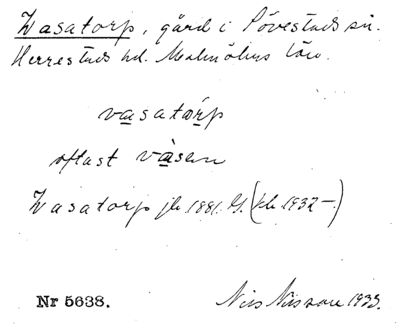 Wasatorp, gård i Pövestads sn.
Herrestads hd. Malmöhus län.
vasatórp
oftast vàsen
Wasatorp jb 1881. G. (kb 1932—)
Nr 5638.
Nils Nilsson 1933.